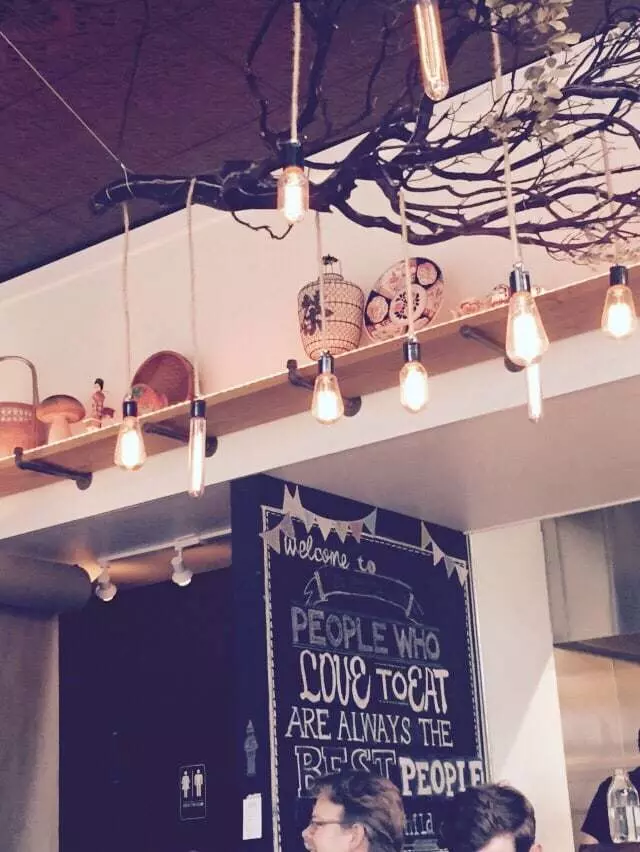 Welcome to
PEOPLE WHO
LOVE TO EAT
ARE ALWAYS THE
BEST PEOPLE